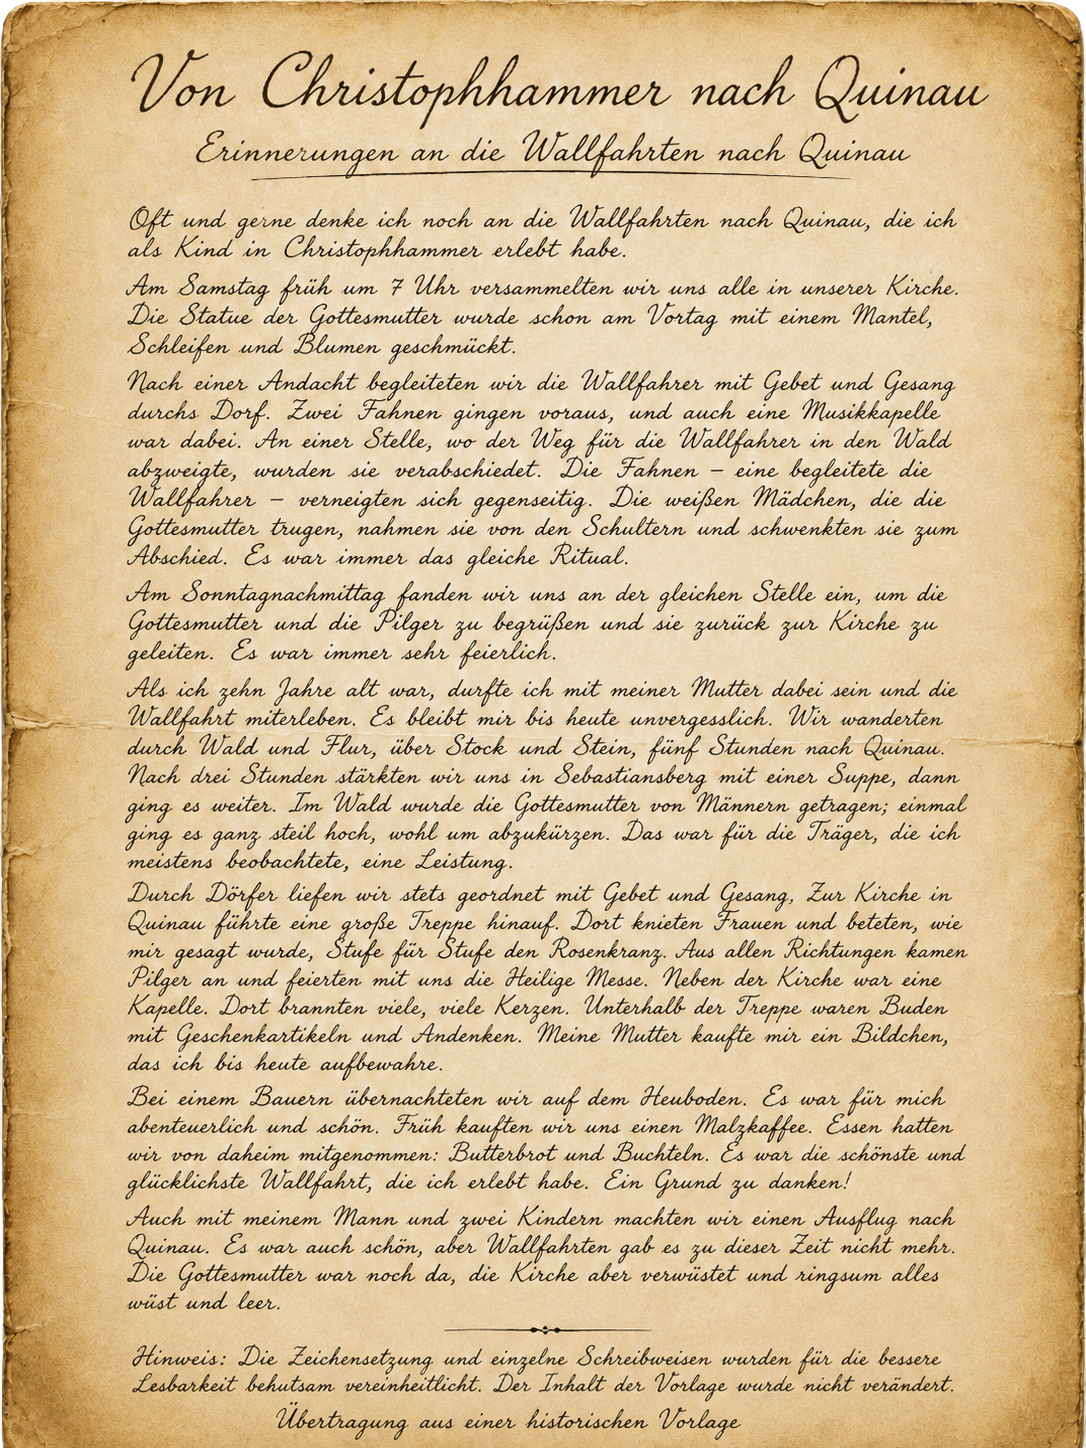 Von Christophhammer nach Quinau
Erinnerungen an die Wallfahrten nach Quinau
Oft und gerne denke ich noch an die Wallfahrten nach Quinau, die ich
als Kind in Christophhammer erlebt habe.
Am Samstag früh um 7 Uhr versammelten wir uns alle in unserer Kirche.
Die Statue der Gottesmutter wurde schon am Vortag mit einem Mantel,
Schleifen und Blumen geschmückt.
Nach einer Andacht begleiteten wir die Wallfahrer mit Gebet und Gesang
durchs Dorf. Zwei Fahnen gingen voraus, und auch eine Musikkapelle
war dabei. An einer Stelle, wo der Weg für die Wallfahrer in den Wald
abzweigte, wurden sie verabschiedet. Die Fahnen – eine begleitete die
Wallfahrer – verneigten sich gegenseitig. Die weißen Mädchen, die die
Gottesmutter trugen, nahmen sie von den Schultern und schwenkten sie zum
Abschied. Es war immer das gleiche Ritual.
Am Sonntagnachmittag fanden wir uns an der gleichen Stelle ein, um die
Gottesmutter und die Pilger zu begrüßen und sie zurück zur Kirche zu
geleiten. Es war immer sehr feierlich.
Als ich zehn Jahre alt war, durfte ich mit meiner Mutter dabei sein und die
Wallfahrt miterleben. Es bleibt mir bis heute unvergesslich. Wir wanderten
durch Wald und Flur, über Stock und Stein, fünf Stunden nach Quinau.
Nach drei Stunden stärkten wir uns in Sebastiansberg mit einer Suppe, dann
ging es weiter. Im Wald wurde die Gottesmutter von Männern getragen; einmal
ging es ganz steil hoch, wohl um abzukürzen. Das war für die Träger, die ich
meistens beobachtete, eine Leistung.
Durch Dörfer liefen wir stets geordnet mit Gebet und Gesang, Zur Kirche in
Quinau führte eine große Treppe hinauf. Dort knieten Frauen und beteten, wie
mir gesagt wurde, Stufe für Stufe den Rosenkranz. Aus allen Richtungen kamen
Pilger an und feierten mit uns die Heilige Messe. Neben der Kirche war eine
Kapelle. Dort brannten viele, viele Kerzen. Unterhalb der Treppe waren Buden
mit Geschenkartikeln und Andenken. Meine Mutter kaufte mir ein Bildchen,
das ich bis heute aufbewahre.
Bei einem Bauern übernachteten wir auf dem Heuboden. Es war für mich
abenteuerlich und schön. Früh kauften wir uns einen Malzkaffee. Essen hatten
wir von daheim mitgenommen: Butterbrot und Buchteln. Es war die schönste und
glücklichste Wallfahrt, die ich erlebt habe. Ein Grund zu danken!
Auch mit meinem Mann und zwei Kindern machten wir einen Ausflug nach
Quinau. Es war auch schön, aber Wallfahrten gab es zu dieser Zeit nicht mehr.
Die Gottesmutter war noch da, die Kirche aber verwüstet und ringsum alles
wüst und leer.
Hinweis: Die Zeichensetzung und einzelne Schreibweisen wurden für die bessere
Lesbarkeit behutsam vereinheitlicht. Der Inhalt der Vorlage wurde nicht verändert.
Übertragung aus einer historischen Vorlage